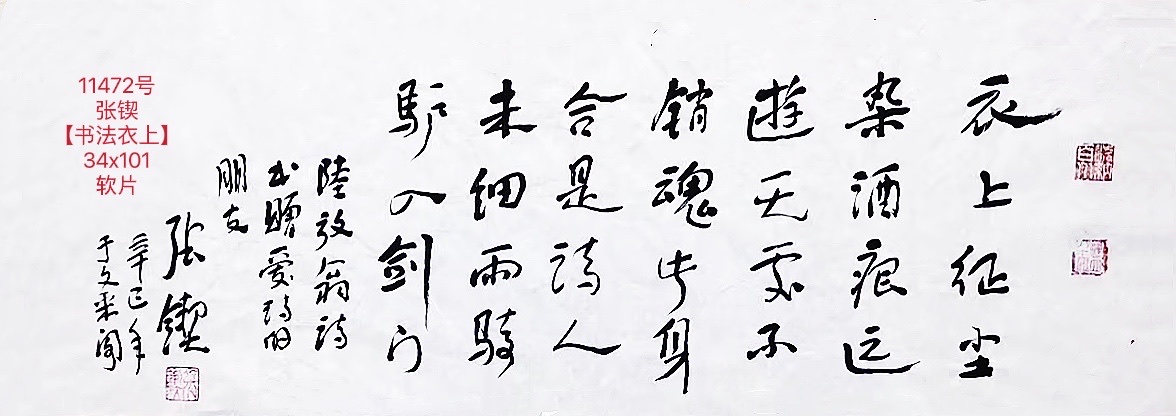 衣上征尘
杂酒痕远
遊无處不
销魂此身
合是诗人
未细雨骑
驴入剑门
陸放翁诗
书赠爱诗的
朋友
张锲
辛巳年
于文采阁
11472号
张锲
【书法衣上】
34x101
软片